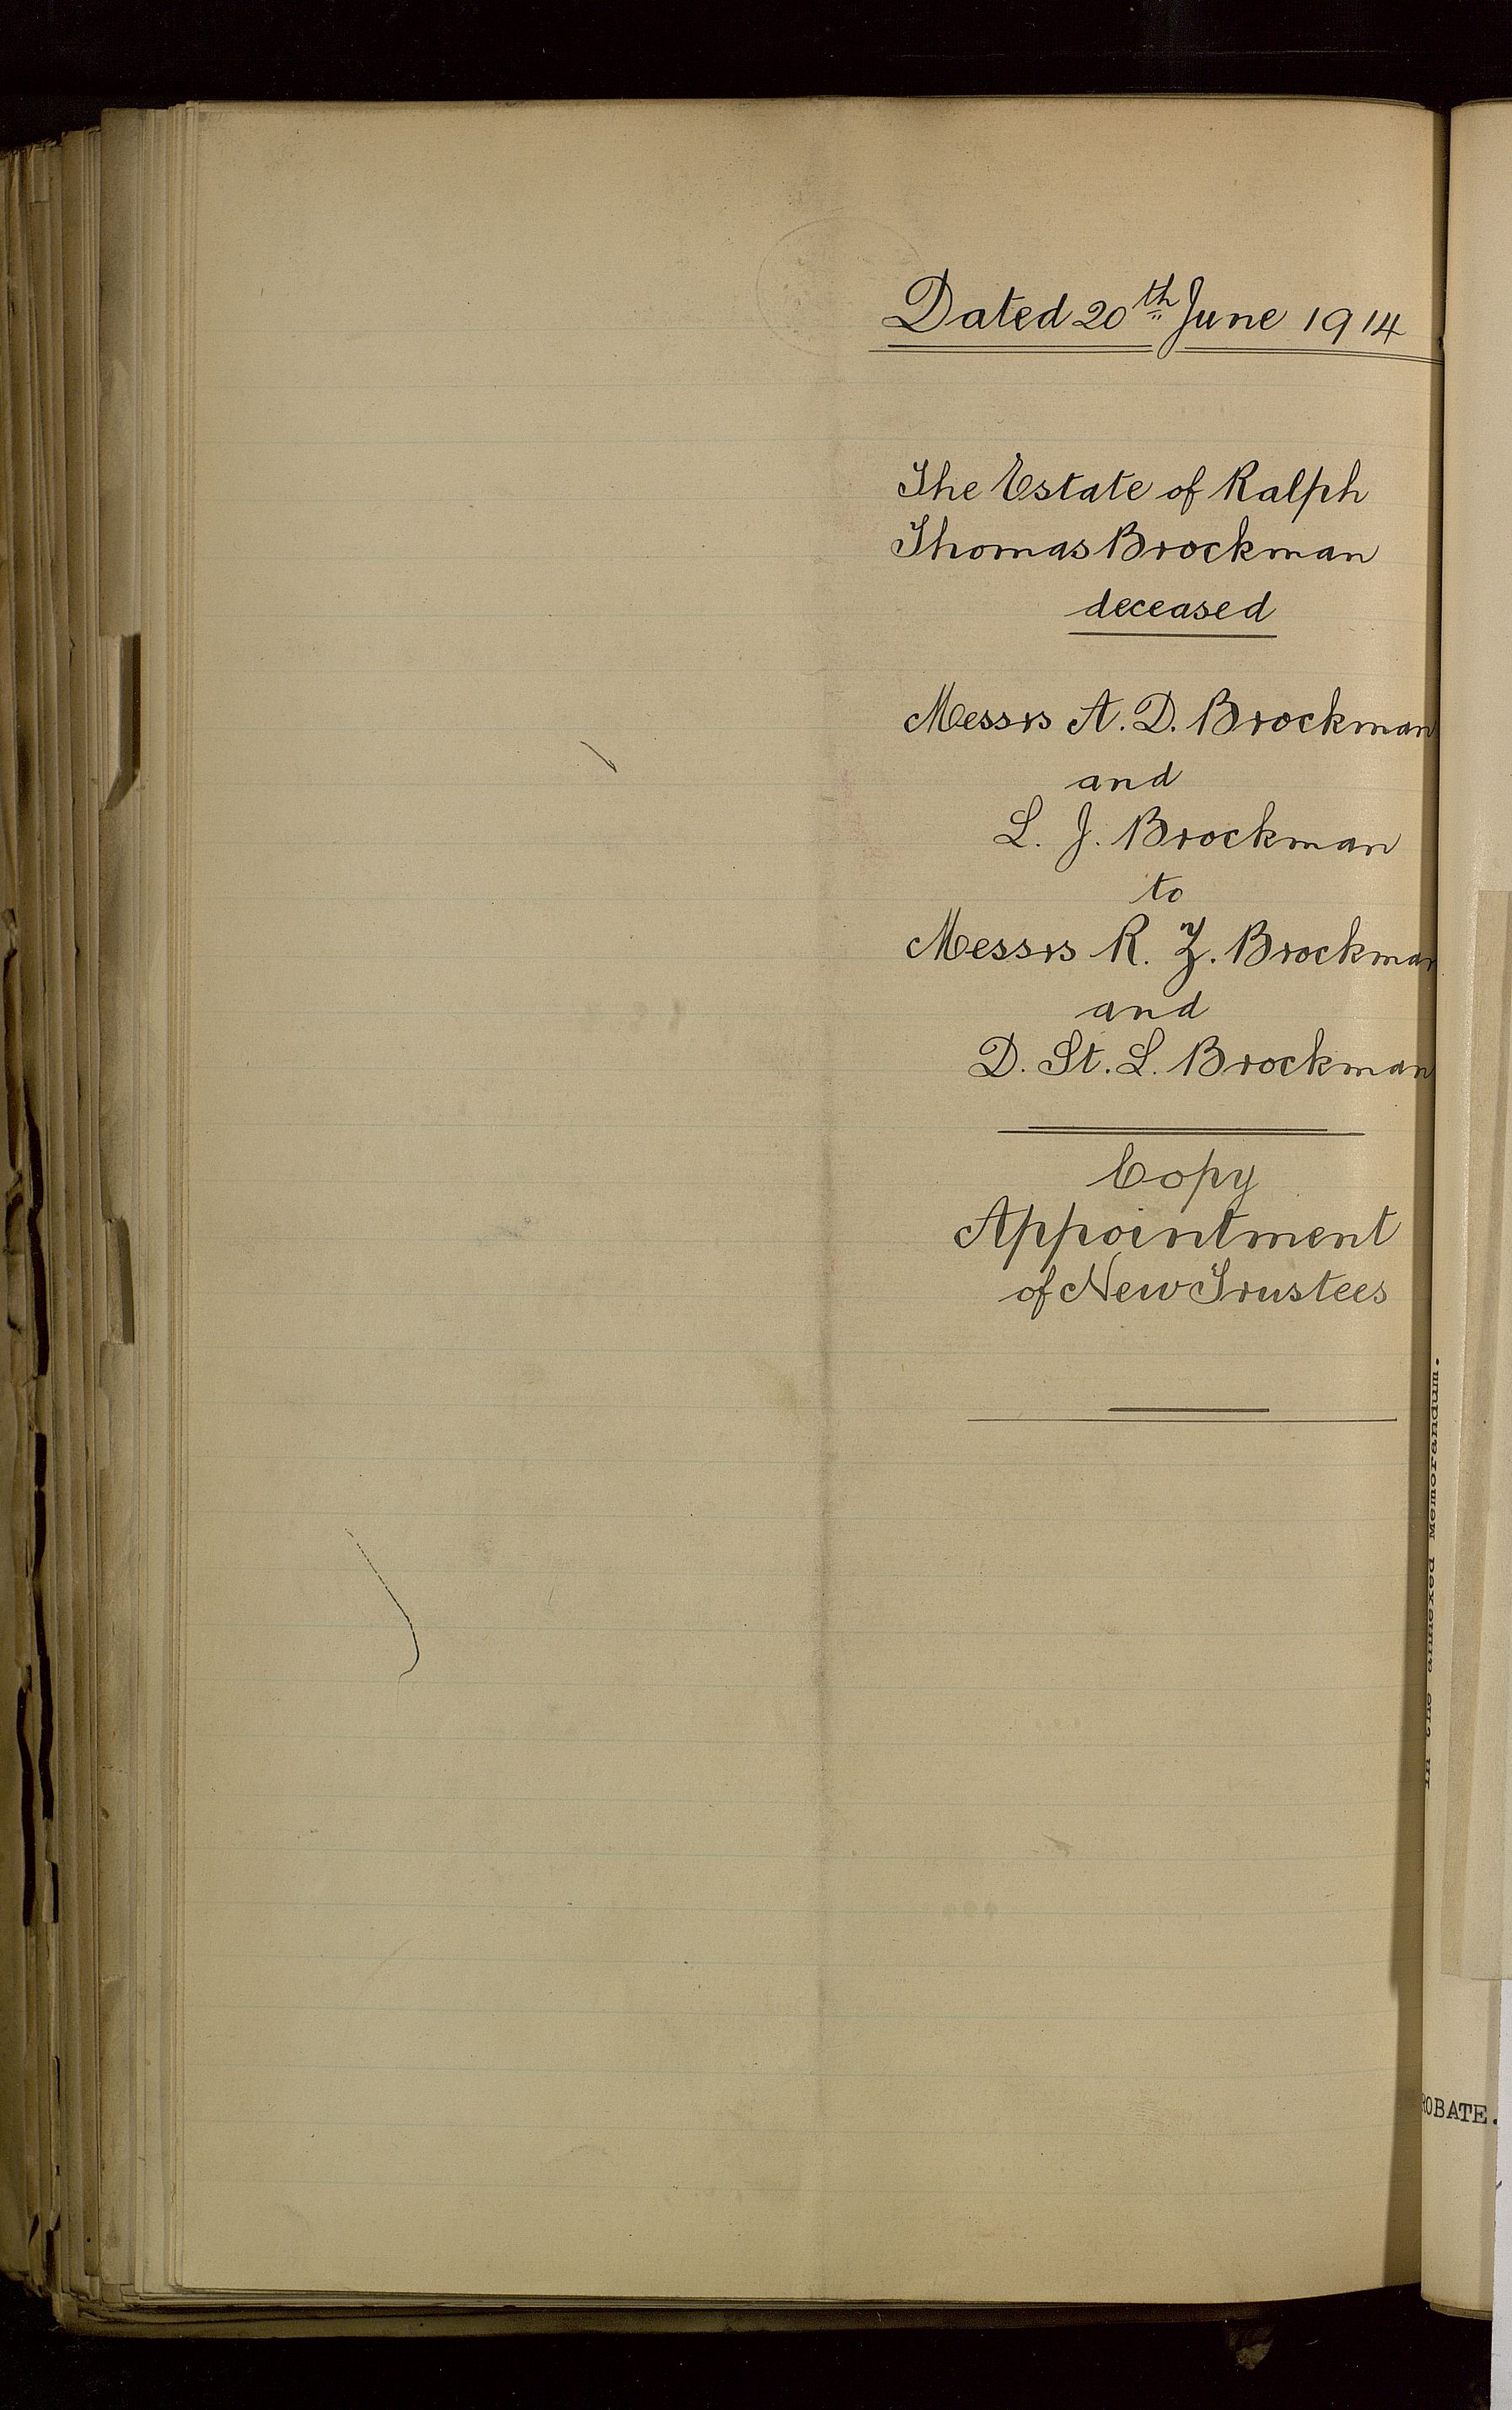 Dated 20th June 1914
The Estate of Ralph
Thomas Brockman
deceased
Messrs A. D. Brockman
and
L. J. Brockman
to
Messrs R. Z. Brockman
and
D. St. L. Brockman
Copy
Appointment
of New Trustees
annexed Memorandum.
OBATE.